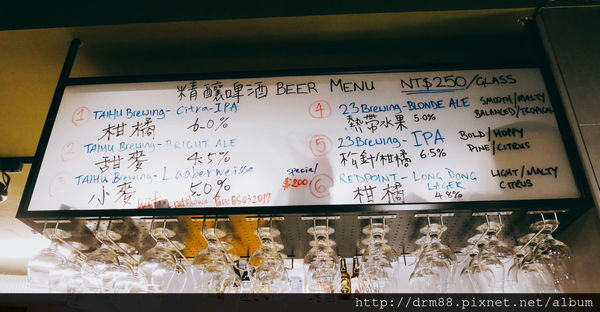 精釀啤酒 BEER MENU NT$250/GLASS
① TAIHU Brewing - Citra-IPA
柑橘 6.0%
2 TAIHU Brewing - BRIGHT ALE
甜麥 4.5%
3 TAIHU Brewing -
小麥 5.0%
④ 23 Brewing - BLONDE ALE
熱帶水果 5.0%
SMOOTH/MALTY
BALANCED/TROPICAL
⑤ 23 Brewing - IPA
松針/柑橘 6.5%
BOLD/HOPPY
PINE/CITRUS
special
$200
⑥ REDPOINT - LONG DONG
LAGER
柑橘 4.8%
LIGHT/MALTY
CITRUS
http://drm88.pixnet.net/album